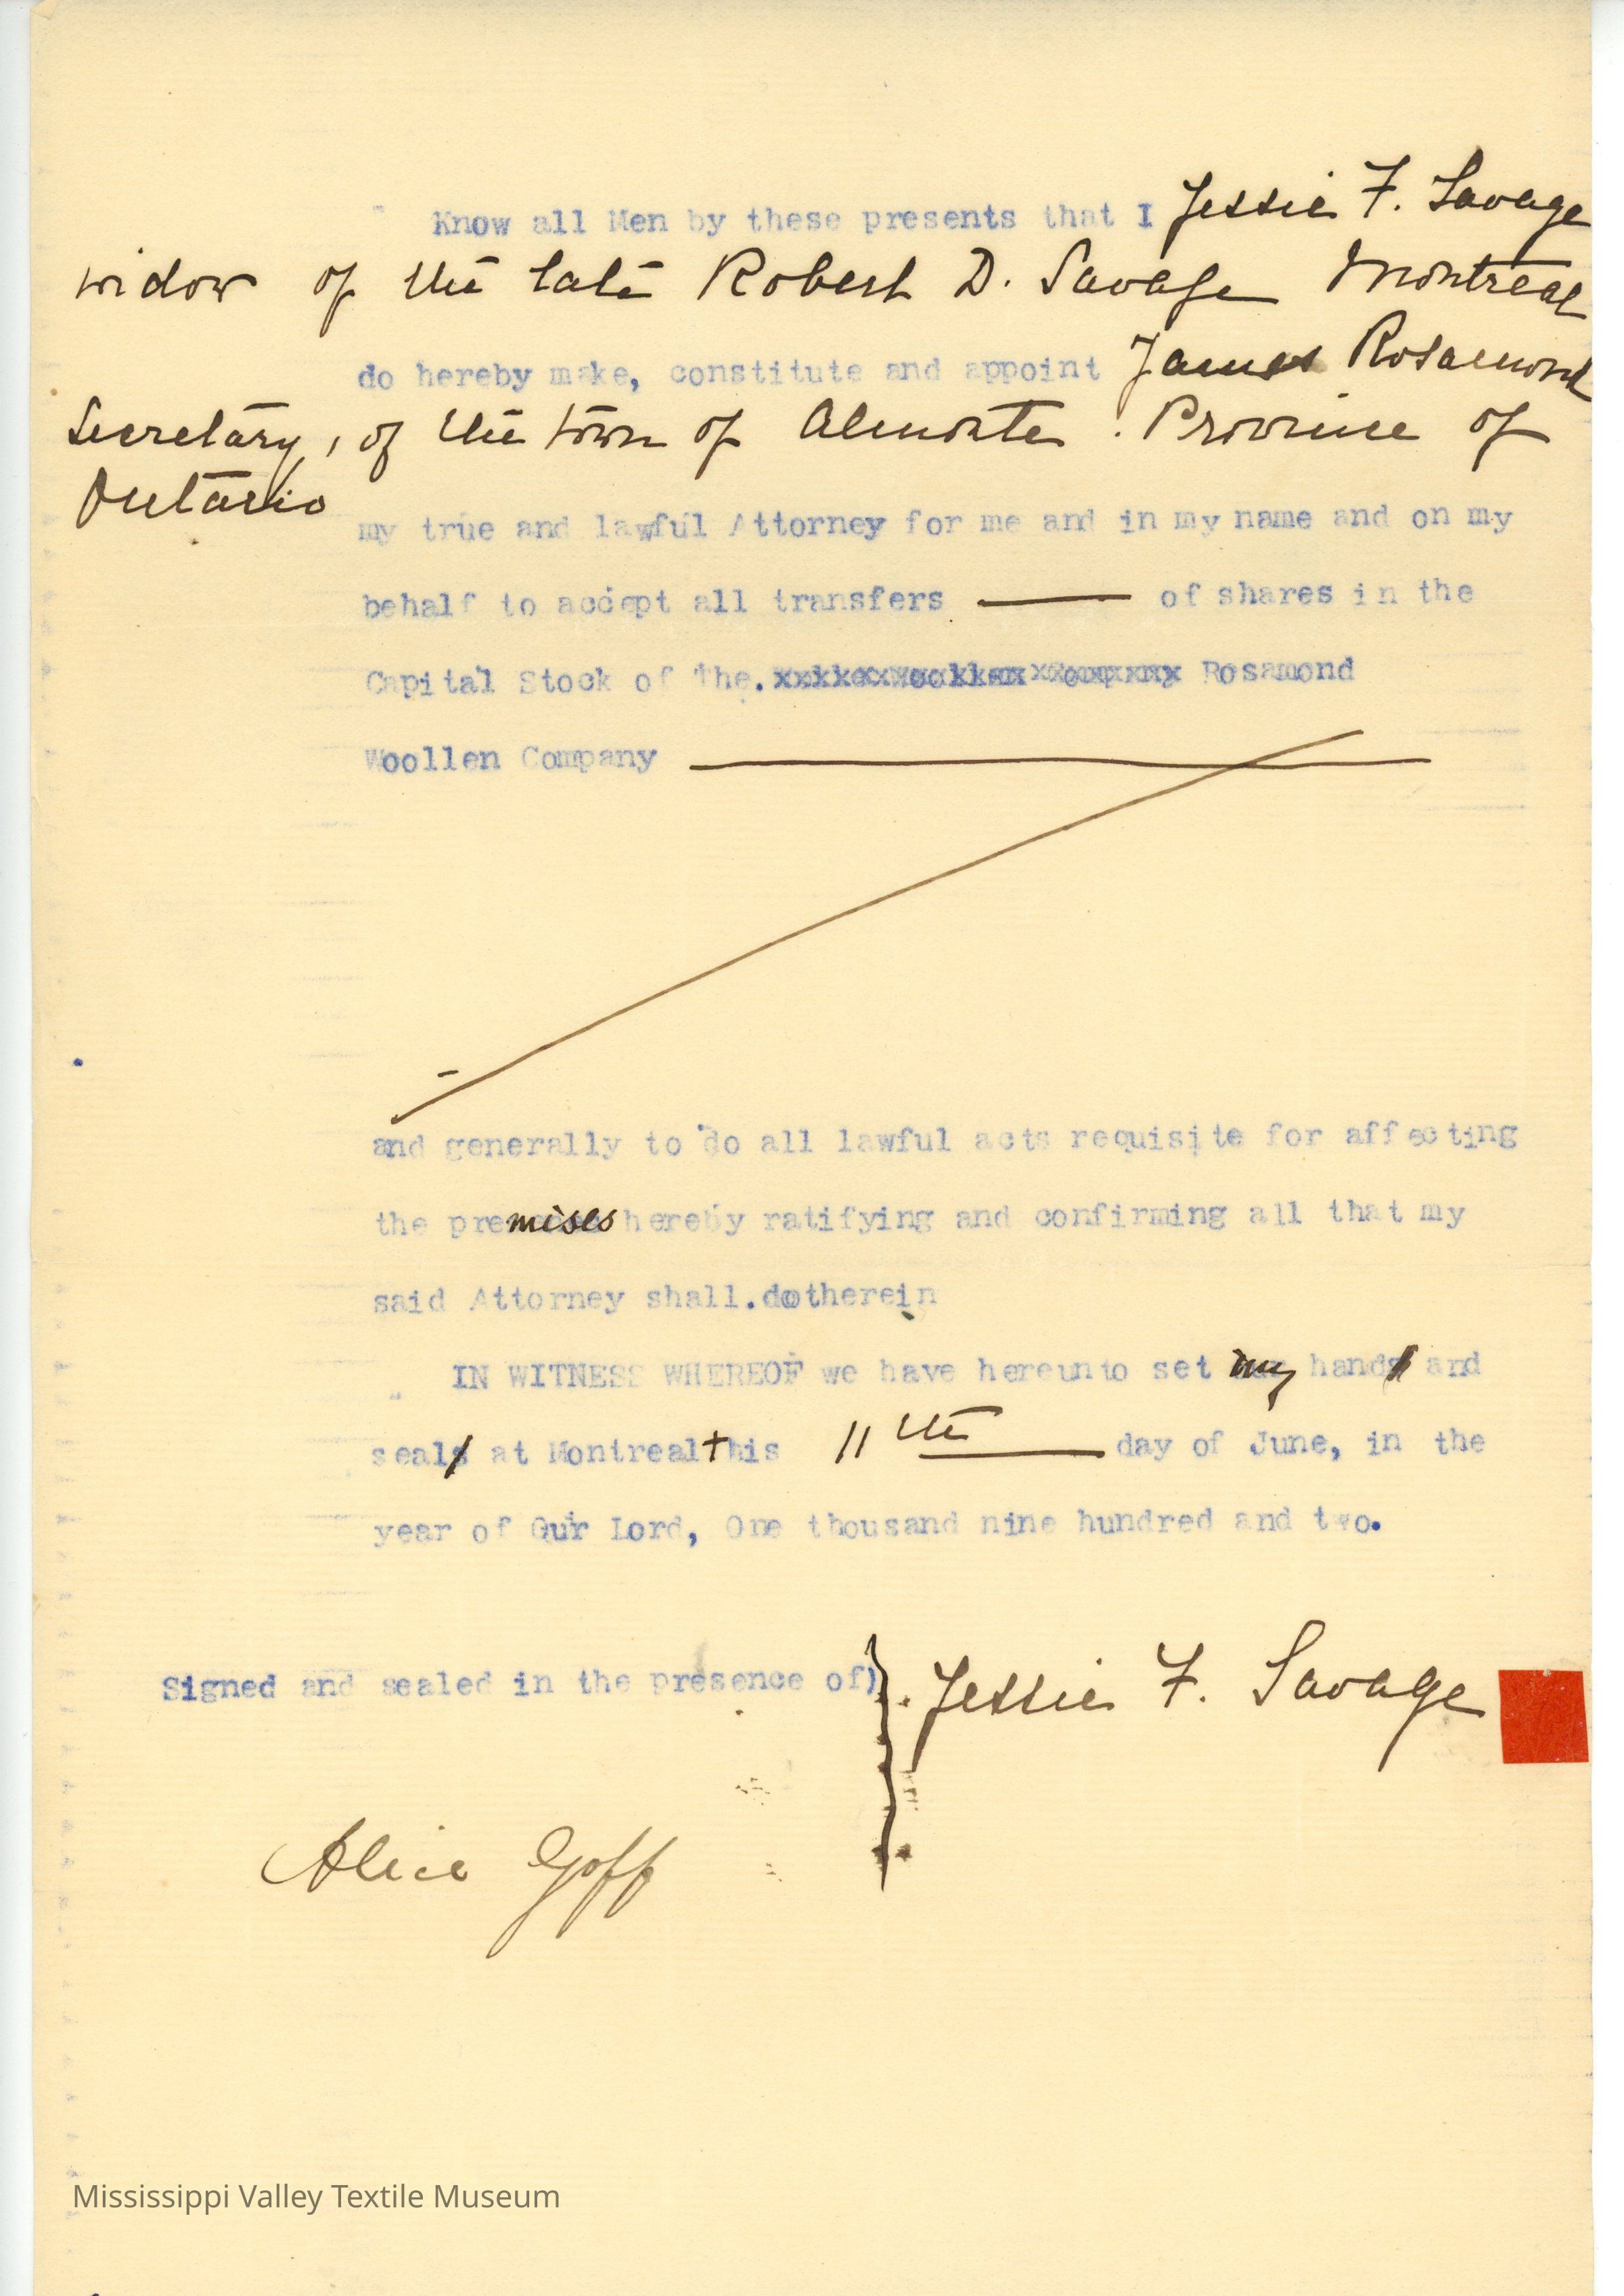 Know all Men by these presents that I Jessie F. Savage
widow of the late Robert D. Savage Montreal
do hereby make, constitute and appoint James Rosamond
Secretary, of the town of Almonte. Province of
Ontario
my true and lawful Attorney for me and in my name and on my
behalf to accept all transfers —— of shares in the
Capital Stock of the. Rosamond
Woollen Company ——
and generally to do all lawful acts requisite for affecting
the premises hereby ratifying and confirming all that my
said Attorney shall.do therein
IN WITNESS WHEREOF we have hereunto set my hand and
seal at Montreal this 11th —— day of June, in the
year of Our Lord, One thousand nine hundred and two.
Signed and sealed in the presence of) Jessie F. Savage
Alice Goff
Mississippi Valley Textile Museum